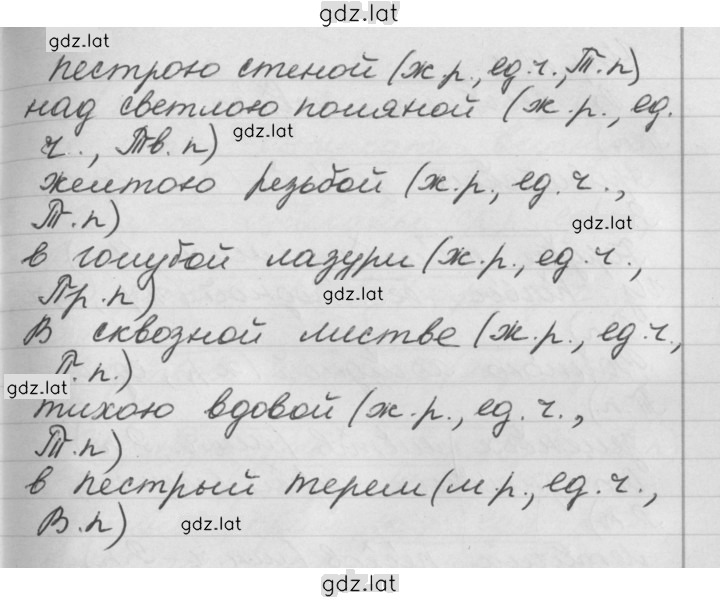 gdz.lat
gdz.lat
пестрою стеной (ж.р., ед.ч., Т.п)
над светлою поляной (ж.р., ед.
ч., Тв.п)
gdz.lat
желтою резьбой (ж.р., ед.ч.,
Т.п)
gdz.lat
в голубой лазури (ж.р., ед.ч.,
Пр.п)
gdz.lat
В сквозной листве (ж.р., ед.ч.,
П.п.)
gdz.lat
тихою вдовой (ж.р., ед.ч.,
Т.п)
в пестрый терем (м.р., ед.ч.,
В.п)
gdz.lat
gdz.lat